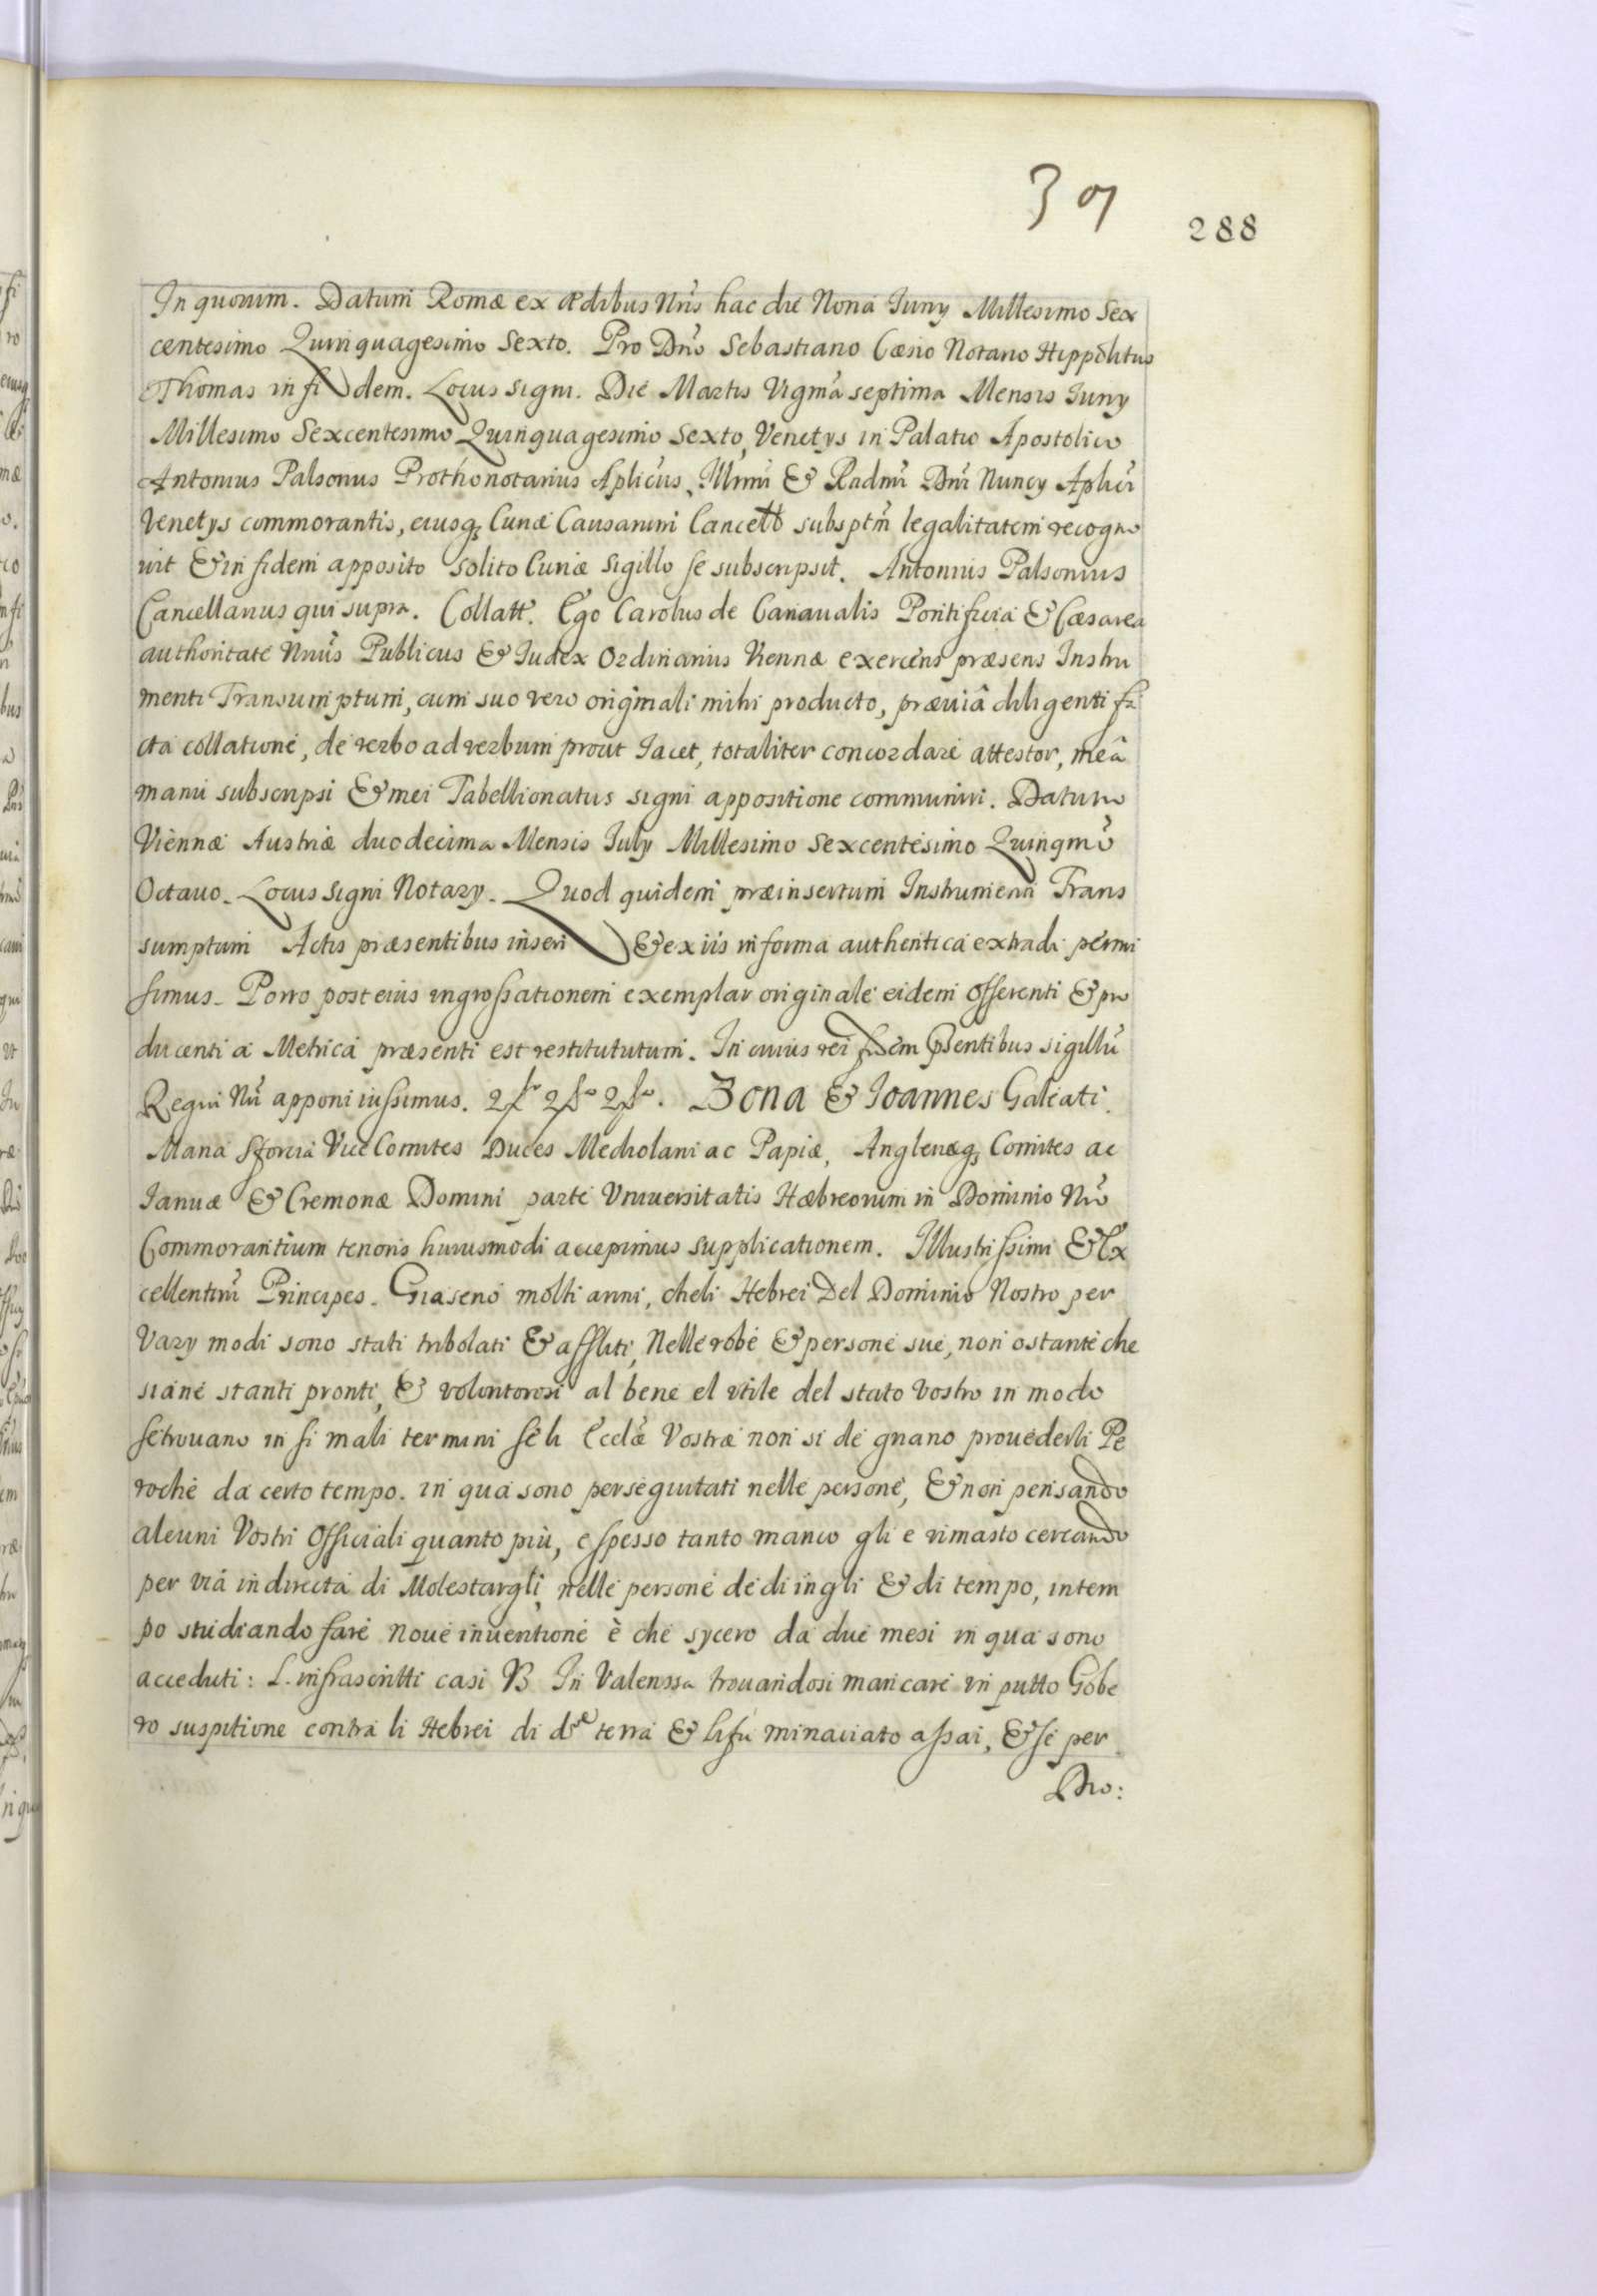 307
288
In quorum. Datum Romæ ex ædibus Nris hac die Nona Iuny Millesimo Sex
centesimo Quinquagesimo Sexto. Pro Dno Sebastiano Cæsio Notario Hippolitus
Thomas in fidem. Locus Signi. Die Martis Vigma septima Mensis Iuny
Millesimo Sexcentesimo Quinquagesimo Sexto, Venetys in Palatio Apostolico
Antonius Palsonus Prothonotarius Aplicus, Illmi & Radmi Dni Nuncy Aplici
Venetys commorantis, eiusq Curiæ Causarum Cancell subsptm legalitatem recogno
uit & in fidem apposito solito Curiæ Sigillo se subscripsit. Antonius Palsonius
Cancellarius qui supra. Collatt. Ego Carolus de Canaualis Pontificia & Cæsarea
authoritate Nrius Publicus & Iudex Ordinarius Viennæ exercens præsens Instru
menti Transumptum, cum suo vero originali mihi producto, præuiâ diligenti fa
cta collatione, de verbo ad verbum prout Iacet, totaliter concordare attestor, meâ
manu subscripsi & mei Tabellionatus signi appositione communiui. Datum
Viennæ Austriæ duodecima Mensis Iuly Millesimo Sexcentesimo Quinqmo
Octauo. Locus Signi Notary. Quod quidem præinsertum Instrumenti Trans
sumptum Actis præsentibus inseri & ex iis in forma authentica extradi permi
simus. Porro post eius ingrossationem exemplar originale eidem offerenti & pro
ducenti a Metrica præsenti est restitututum. In cuius rei fidem psentibus sigillu
Regni Nri apponi iussimus. Bona & Ioannes Galeati
Maria Sforcia Vice Comites Duces Mediolani ac Papiæ, Anglenæq Comites ac
Ianuæ & Cremonæ Domini parte Vniuersitatis Hæbreorum in Dominio Nro
Commorantium tenoris huiusmodi accepimus supplicationem. Illustrissimi & Ex
cellentmi Principes. Gia seno molti anni, che li Hebrei Del Dominio Nostro per
Vary modi sono stati tribolati & affliti, Nelle robe & persone sue, non ostante che
siane stanti pronti, & volontorosi al bene el vtile del stato Vostro in modo
se trouano in si mali termini se li Eccla Vostræ non si de gnano prouederli Pe
roche da certo tempo. in qua sono perseguitati nelle persone, & non pensando
alcuni Vostri Officiali quanto più, e spesso tanto manco gli e rimasto cercando
per via indirecta di Molestargli, nelle persone de di ingli & di tempo, in tem
po studiando fare noue inuentione è che sycero da due mesi in qua sono
acceduti: L. infrascritti casi V3 In Valenssa trouandosi mancare un putto Gobe
ro suspitione contra li Hebrei di dte terra & li fu minaciato assai, & se per
Dio: